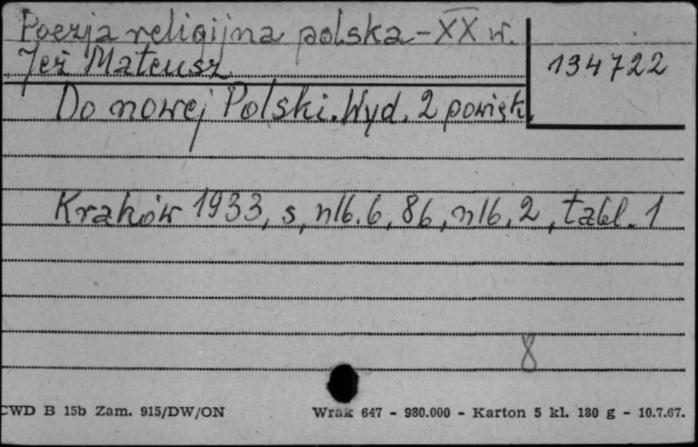 Poezja religijna polska - XX w.
Jeż Mateusz
134722
Do nowej Polski. Wyd. 2 powięk.
Kraków 1933, s, nlb. 6, 86, nlb. 2, tabl. 1
8
CWD B 15b Zam. 915/DW/ON Wrak 647 - 980.000 - Karton 5 kl. 180 g - 10.7.67.